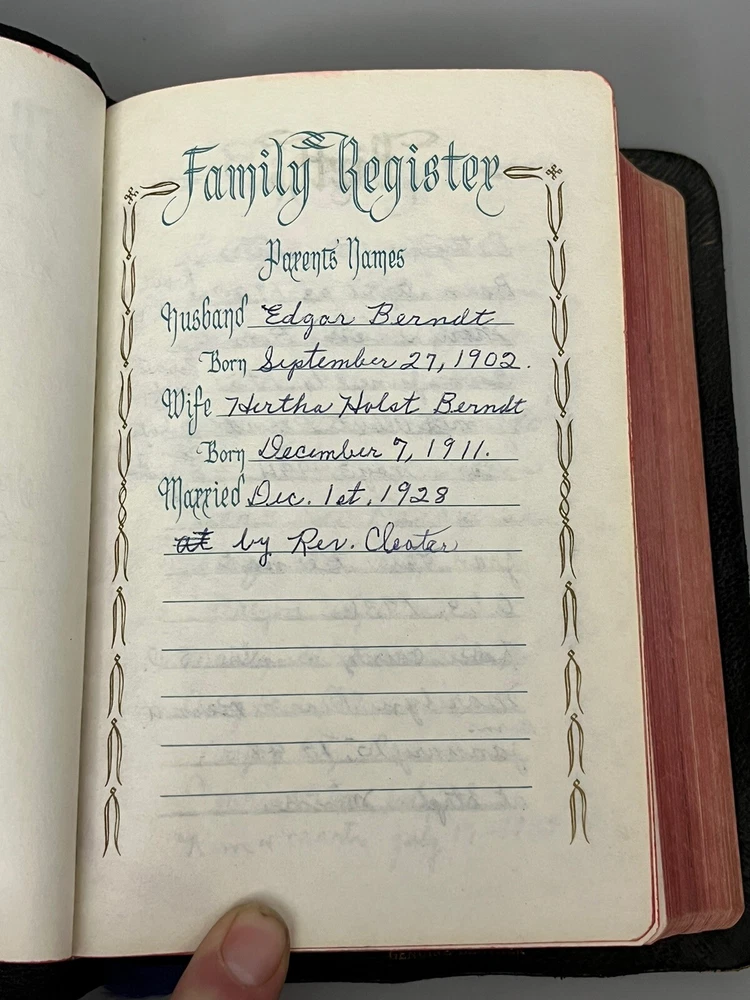 Family Register
Parents' Names
Husband Edgar Berndt
Born September 27, 1902.
Wife Hertha Holst Berndt
Born December 7, 1911.
Married Dec. 1st, 1928
at by Rev. Cloater